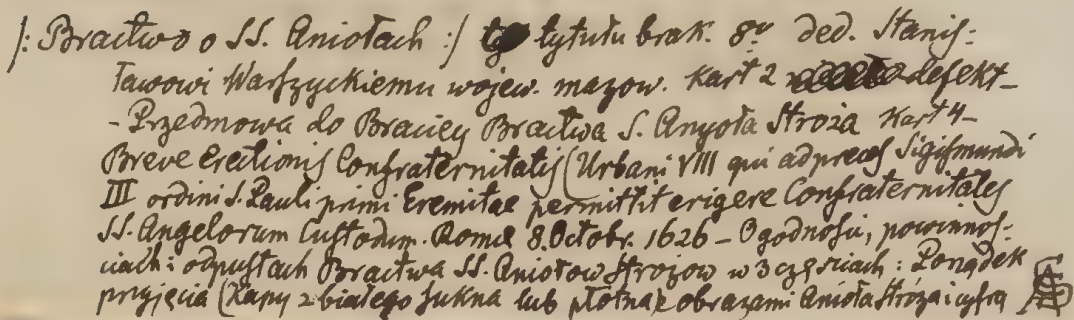 /: Bractwo o SS. Aniołach :/ tytułu brak. 8º ded. Stanis-
ławowi Warszyckiemu wojew. mazow. Kart 2 defekt –
– Przedmowa do Braciey Bractwa S. Anyoła Stroża Kart 4 –
Breve Erectionis Confraternitatis (Urbani VIII qui ad preces Sigismundi
III ordini S. Pauli primi Eremitae permittit erigere Confraternitates
SS. Angelorum Custodum. Romæ 8. Octobr. 1626 – O godności, powinnoś-
ciach i odpustach Bractwa SS. Aniołow Strożow w 3 częściach : Porządek
przyjęcia (Kapy z białego sukna lub płotna z obrazami Anioła Stróża i cyfrą